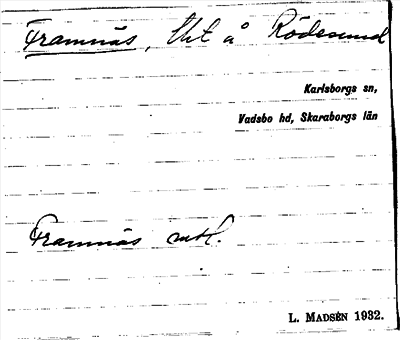 Framnäs, lht å Rödesund
Karlsborgs sn,
Vadsbo hd, Skaraborgs län
Framnäs mtl.
L. MADSÉN 1932.